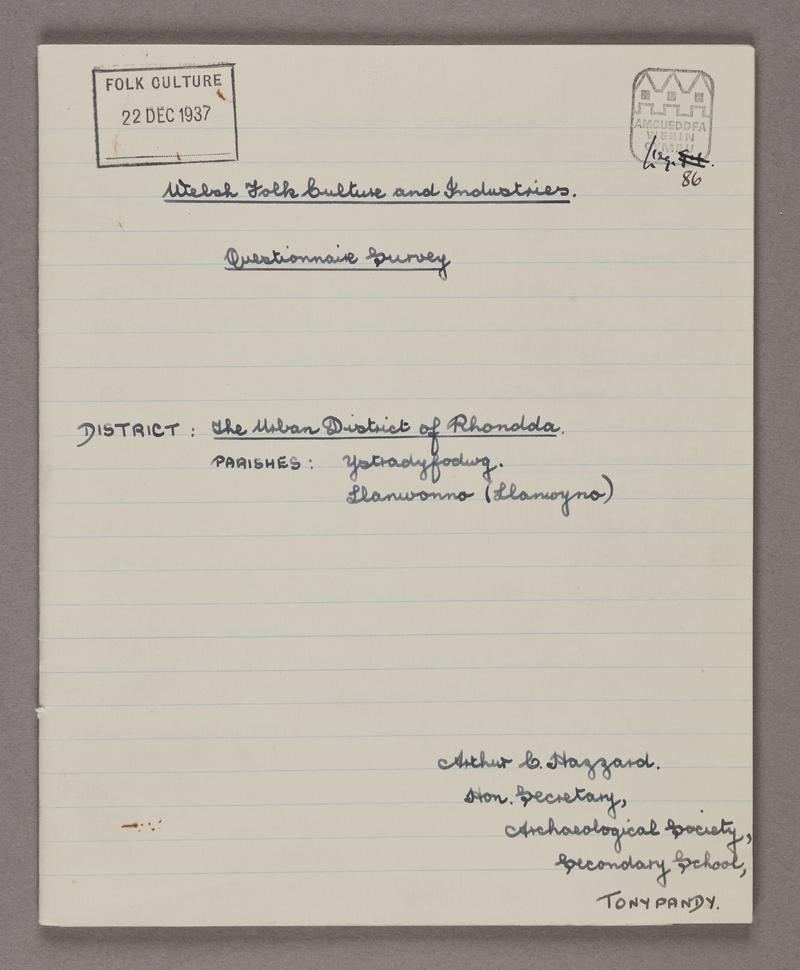 FOLK CULTURE
22 DEC 1937
AMGUEDDFA
WERIN
CYMRU
86
Welsh Folk Culture and Industries.
Questionnaire Survey
DISTRICT : The Urban District of Rhondda.
PARISHES : Ystradyfodwg.
Llanwonno (Llanwyno)
Arthur C. Hazzard.
Hon. Secretary,
Archaeological Society,
Secondary School,
TONYPANDY.